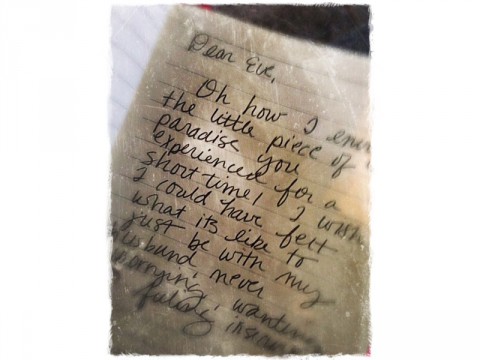 Dear Eve,
Oh how I envy
the little piece of
paradise you
experienced for a
short time! I wish
I could have felt
what its like to
just be with my
husband never
worrying, wanting
feeling